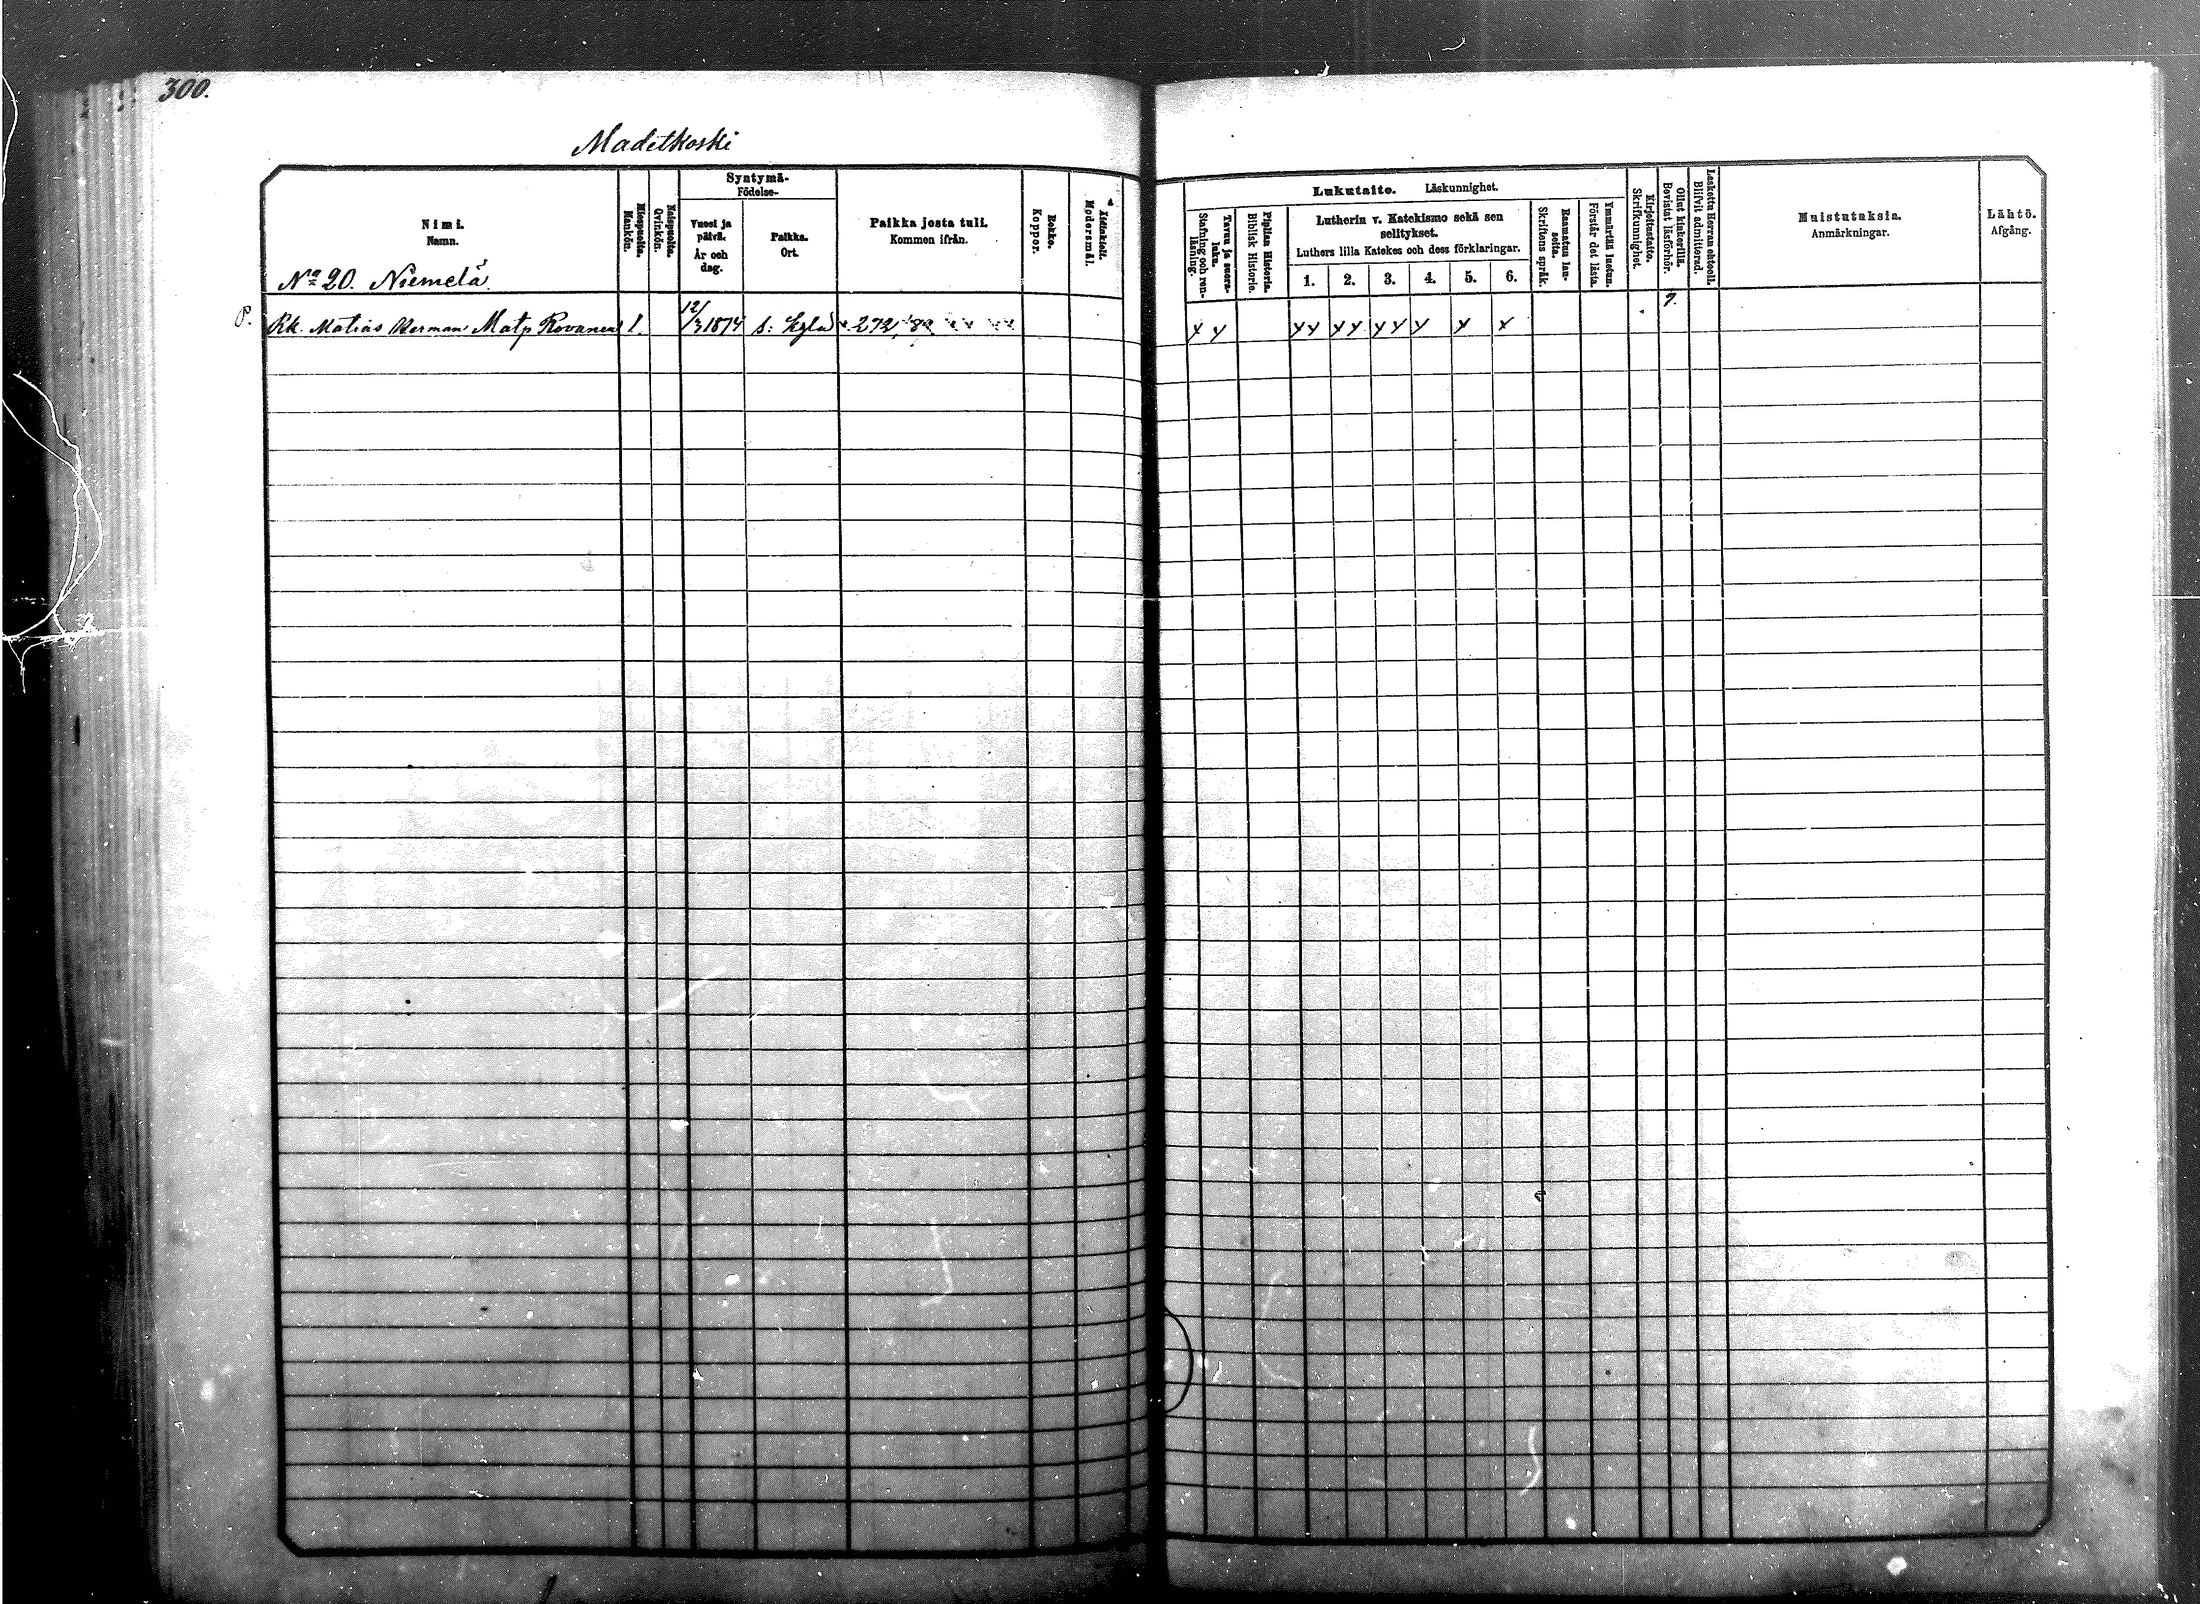 300.
Madetkoski
Nimi.
Namn.
Miespuolta.
Mankön.
Naispuolta.
Qvinkön.
Syntymä-
Födelse-
Vuosi ja
päivä.
År och
dag.
Paikka.
Ort.
Paikka josta tuli.
Kommen ifrån.
Rokko.
Koppor.
Äidinkieli.
Modersmål.
Lukutaito. Läskunnighet.
Tavuu ja suora-
luku.
Stafning och ren-
läsning.
Piplian Historia.
Biblisk Historie.
Lutherin v. Katekismo sekä sen
selitykset.
Luthers lilla Katekes och dess förklaringar.
1. 2. 3. 4. 5. 6.
Raamatun lau-
seita.
Skriftens språk.
Ymmärtää luetun.
Förstår det lästa.
Kirjoitustaito.
Skrifkunnighet.
Ollut kinkerillä.
Bevistat läsförhör.
Laskettu Herran ehtooll.
Blifvit admitterad.
Muistutuksia.
Anmärkningar.
Lähtö.
Afgång.
No 20. Niemelä
P. Rk. Matias Herman Matp Rovanen 1. 12/3 1874 s: 272, x x x x x x x x x x x 9.